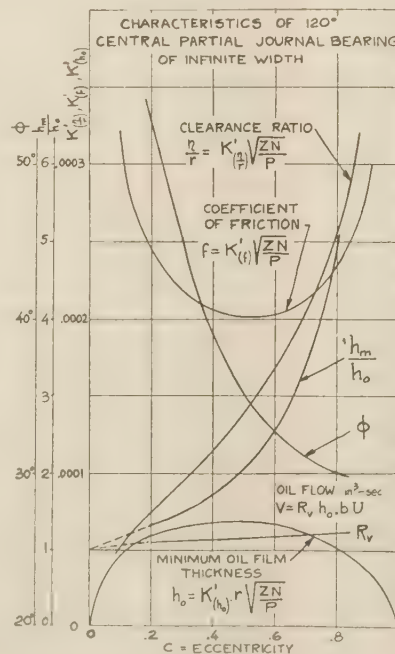 CHARACTERISTICS OF 120°
CENTRAL PARTIAL JOURNAL BEARING
OF INFINITE WIDTH
ϕ
hm/ho
K'(η/r), K'(f), K'(ho)
CLEARANCE RATIO
η/r = K'(η/r) √ZN/P
COEFFICIENT
OF FRICTION
f = K'(f) √ZN/P
hm/ho
ϕ
OIL FLOW in³-sec
V = Rv ho. b U
Rv
MINIMUM OIL FILM
THICKNESS
ho = K'(ho) · r √ZN/P
50° 6 .0003
5
40° 4 .0002
3
30° 2 .0001
1
20° 0 0
0 .2 .4 .6 .8
C = ECCENTRICITY